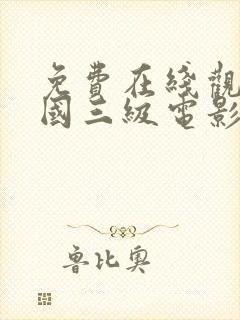 免費在綫觀
國三級電影
魯比奧